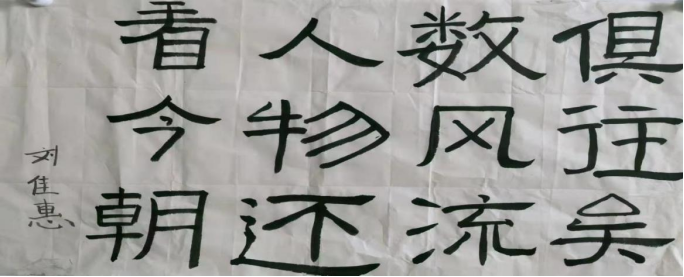 俱往矣
数风流
人物还
看今朝
刘佳惠